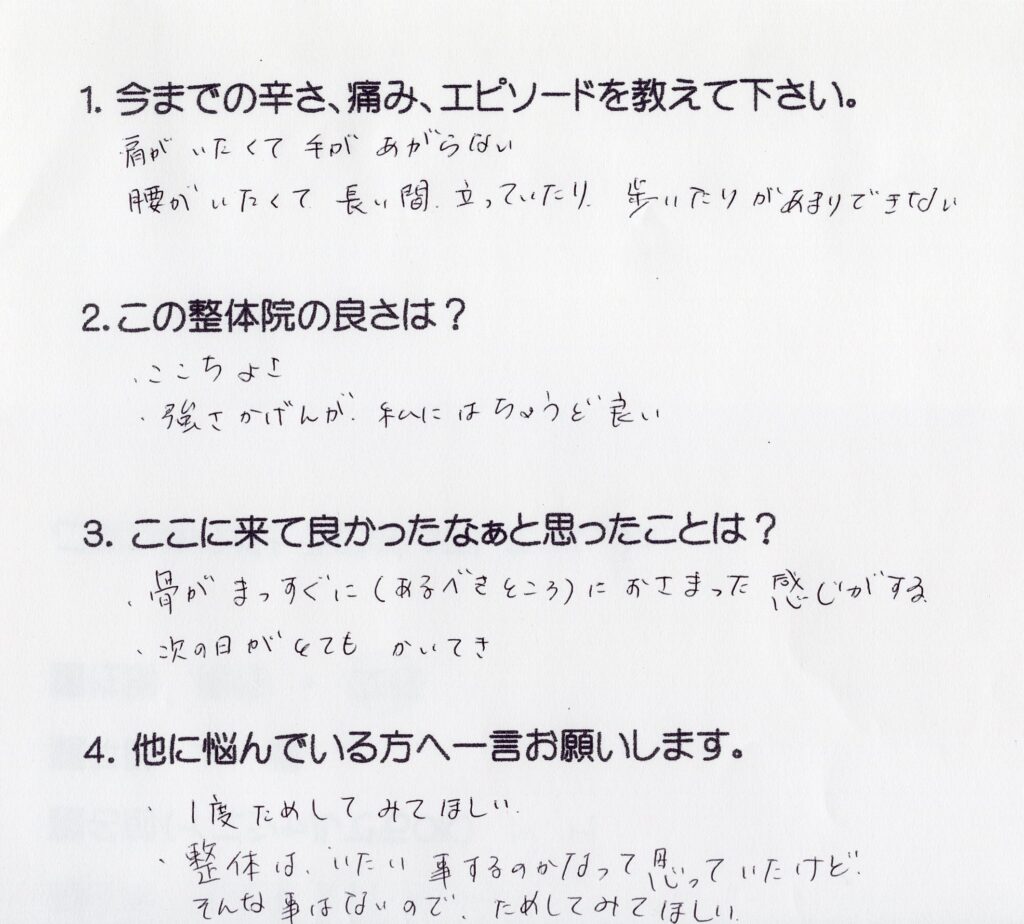 1. 今までの辛さ、痛み、エピソードを教えて下さい。
肩が いたくて 手が あがらない
腰が いたくて 長い間 立っていたり 歩いたり があまりできない
2. この整体院の良さは？
・ここちよさ
・強さかげんが 私にはちょうど良い
3. ここに来て良かったなぁと思ったことは？
・骨が まっすぐに(あるべきところ)に おさまった 感じがする
・次の日が とても かいてき
4. 他に悩んでいる方へ一言お願いします。
・1度 ためして みて ほしい
・整体は、いたい 事するのかなって 思っていたけど
そんな 事はないので、ためしてみて ほしい